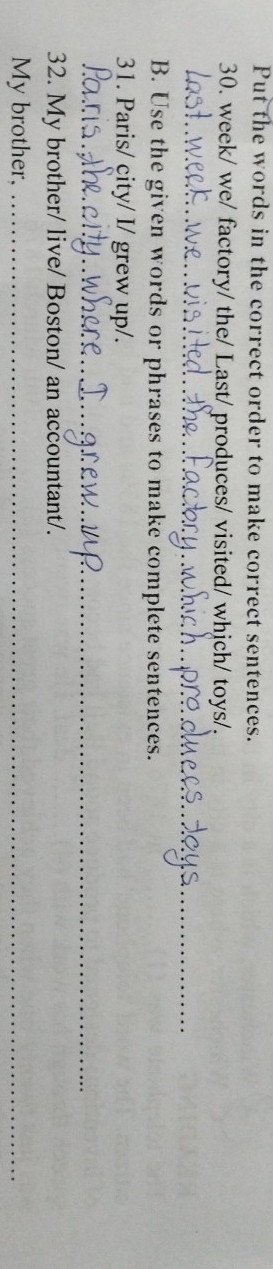 Put the words in the correct order to make correct sentences.
30. week/ we/ factory/ the/ Last/ produces/ visited/ which/ toys/.
Last week we visited the factory which produces toys
B. Use the given words or phrases to make complete sentences.
31. Paris/ city/ I/ grew up/.
Paris the city where I grew up
32. My brother/ live/ Boston/ an accountant/.
My brother,